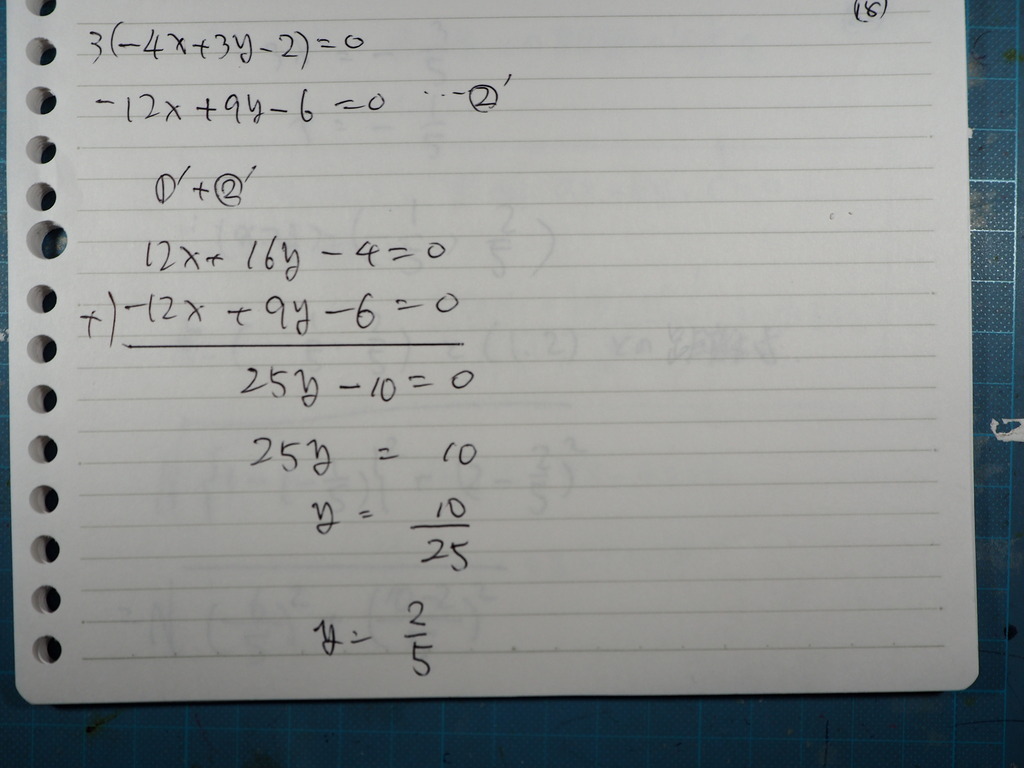 (18)
3(-4x+3y-2)=0
-12x+9y-6=0 ...②'
①'+②'
12x+16y-4=0
+)-12x+9y-6=0
25y-10=0
25y = 10
y = 10/25
y = 2/5